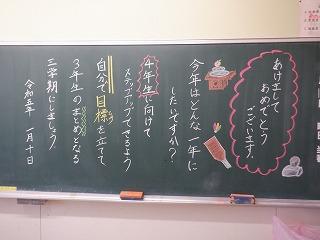 あけまして
おめでとう
ございます。
今年はどんな一年に
したいですか？
４年生に向けて
ステップアップできるよう
自分で目標を立てて
３年生のまとめとなる
三学期にしましょう
令和五年 一月十日